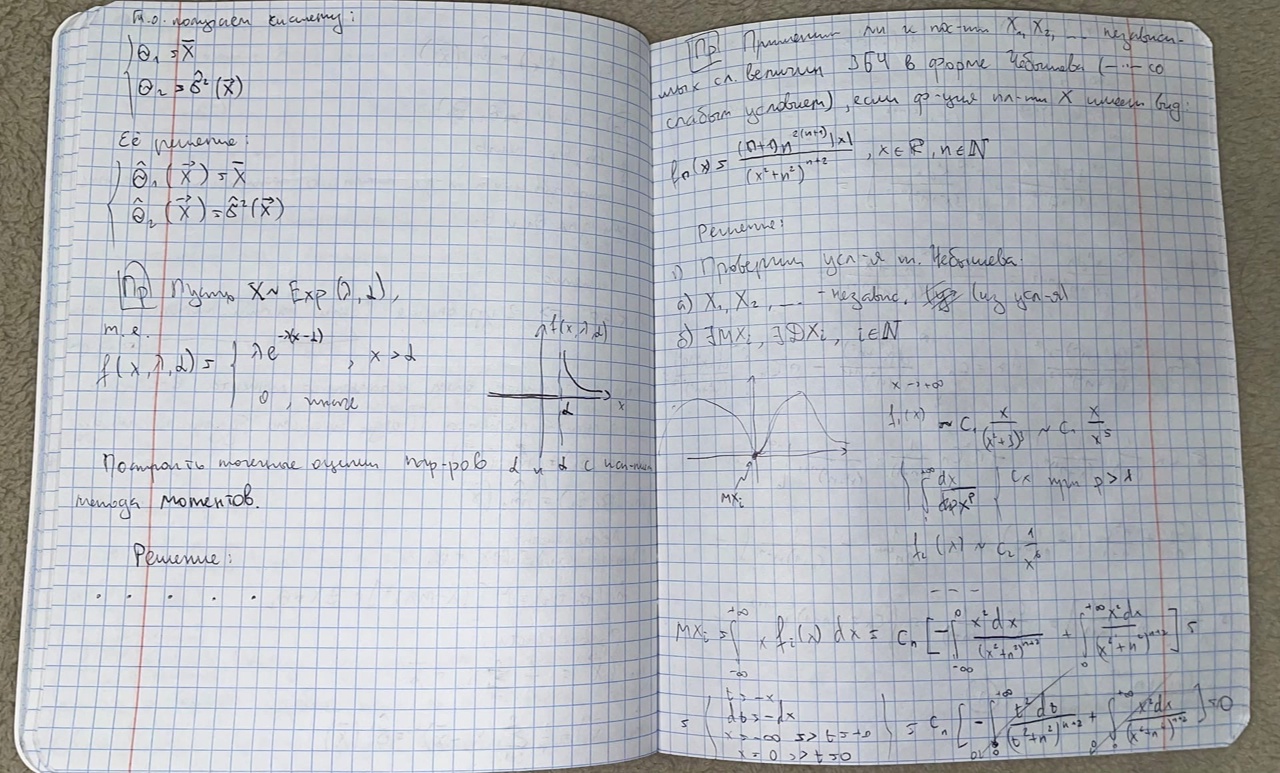 Т.о. получаем систему:
θ₁ = X̄
θ₂ = σ̂²(X⃗)
Её решение:
θ̂₁(X⃗) = X̄
θ̂₂(X⃗) = σ̂²(X⃗)
Пр Пусть X ~ Exp(λ, α),
т.е.
f(x, λ, α) = { λe^{-λ(x-α)}, x > α
0, иначе
f(x, λ, α)
α x
Построить точечные оценки пар-ров α и α с исп-ем
метода моментов.
Решение:
. . . . .
Пр Применим ли к пос-ти X₁, X₂, ... независи-
мых сл. величин ЗБЧ в форме Чебышева (--- со
слабым условием), если ф-ция пл-ти X имеет вид:
fₙ(x) = (n+1)n^{2(n+1)}|x| / (x²+n²)^{n+2}, x ∈ ℝ, n ∈ ℕ
Решение:
1) Проверим усл-я т. Чебышева.
а) X₁, X₂, ... - независ. (из усл-я)
б) ∃MXᵢ, ∃DXᵢ, i ∈ ℕ
x → +∞
f₁(x) ~ C₁ x/(x²+1)³ ~ C₁ x/x⁵
MXᵢ
∫^{+∞} dx/x^p сх при p > 1
f₂(x) ~ C₂ 1/x⁶
- - -
MXᵢ = ∫_{-∞}^{+∞} x fᵢ(x) dx = Cₙ [-∫_{-∞}^{0} x²dx/(x²+n²)^{n+2} + ∫_{0}^{+∞} x²dx/(x²+n²)^{n+2}] =
= { t = -x
dt = -dx
x = -∞ => t = +∞
x = 0 => t = 0 } = Cₙ [-∫_{0}^{+∞} t²dt/(t²+n²)^{n+2} + ∫_{0}^{+∞} x²dx/(x²+n²)^{n+2}] = 0